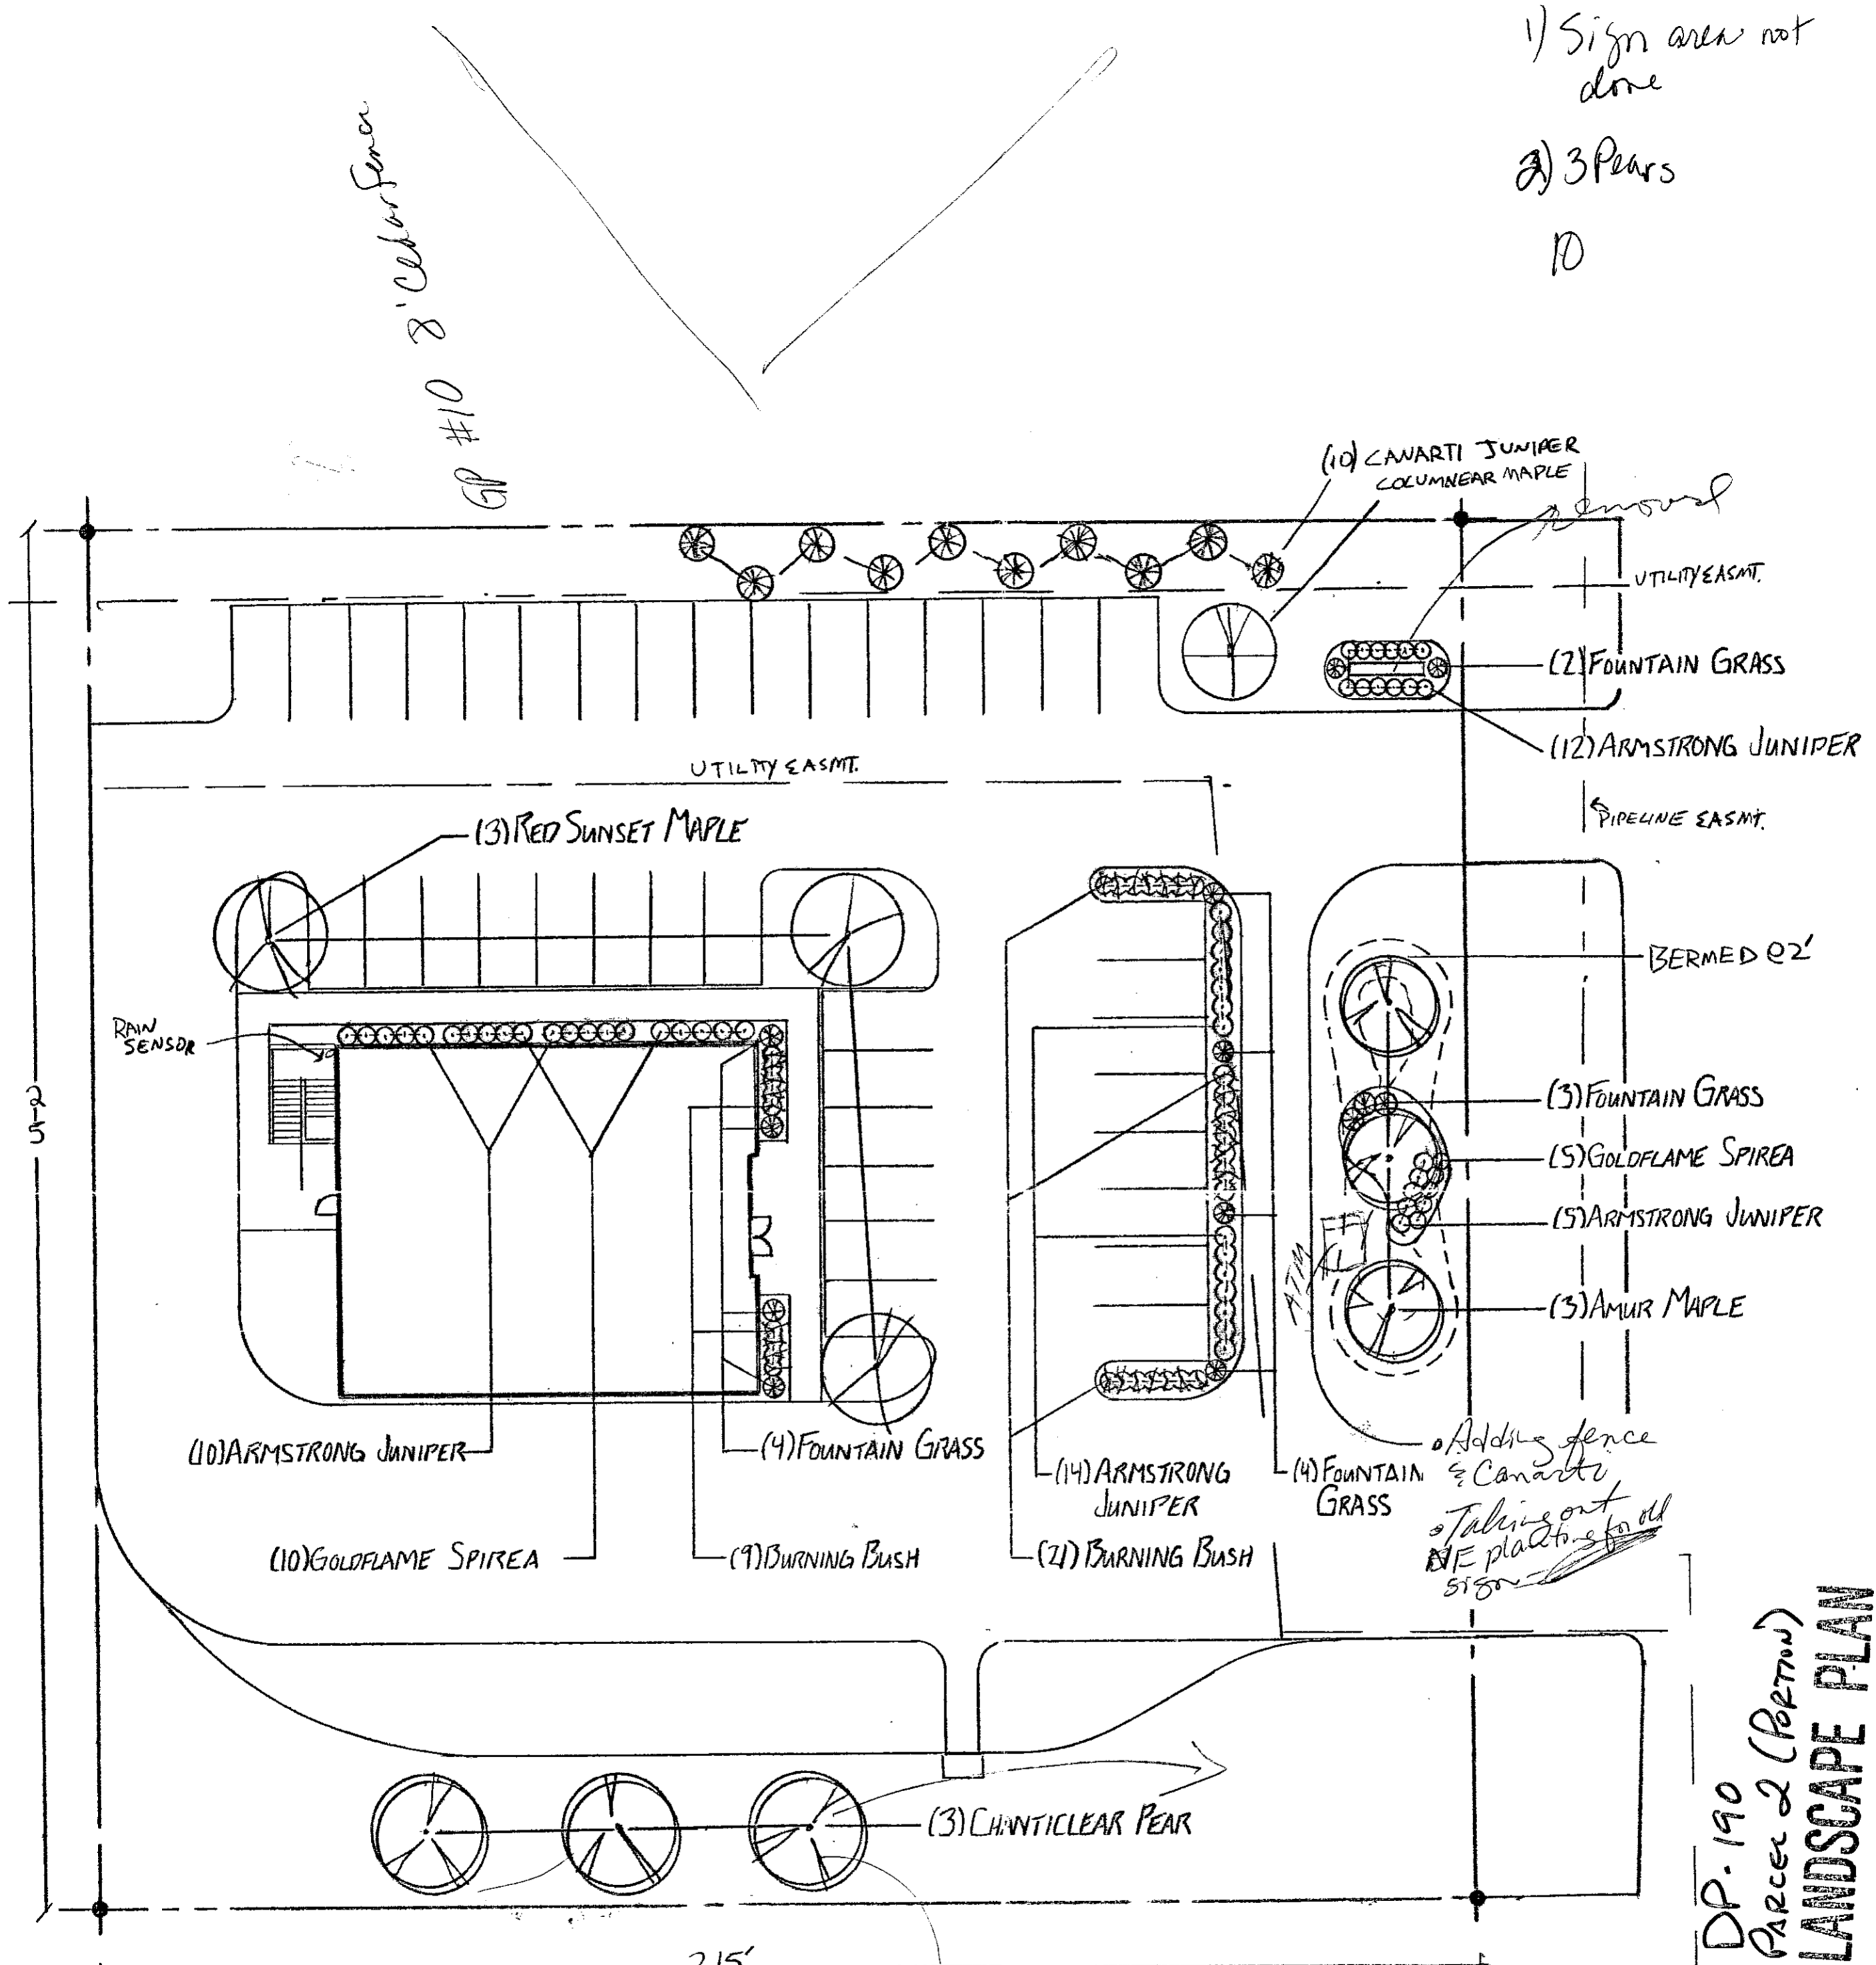 1) Sign area not
done
2) 3 Pears
10
GP #10 8' Cedar fence
(10) CANARTI JUNIPER
COLUMNEAR MAPLE
removed
UTILITY EASMT.
(2) FOUNTAIN GRASS
(12) ARMSTRONG JUNIPER
UTILITY EASMT.
PIPELINE EASMT.
(3) RED SUNSET MAPLE
BERMED @2'
RAIN
SENSOR
(3) FOUNTAIN GRASS
(5) GOLDFLAME SPIREA
(5) ARMSTRONG JUNIPER
ATM
(3) AMUR MAPLE
(10) ARMSTRONG JUNIPER
(4) FOUNTAIN GRASS
(14) ARMSTRONG
JUNIPER
(4) FOUNTAIN
GRASS
• Adding fence
& Canarti
• Taking out
NE planting for old
sign
(10) GOLDFLAME SPIREA
(9) BURNING BUSH
(21) BURNING BUSH
(3) CHANTICLEAR PEAR
215'
DP-190
PARCEL 2 (PORTION)
LANDSCAPE PLAN